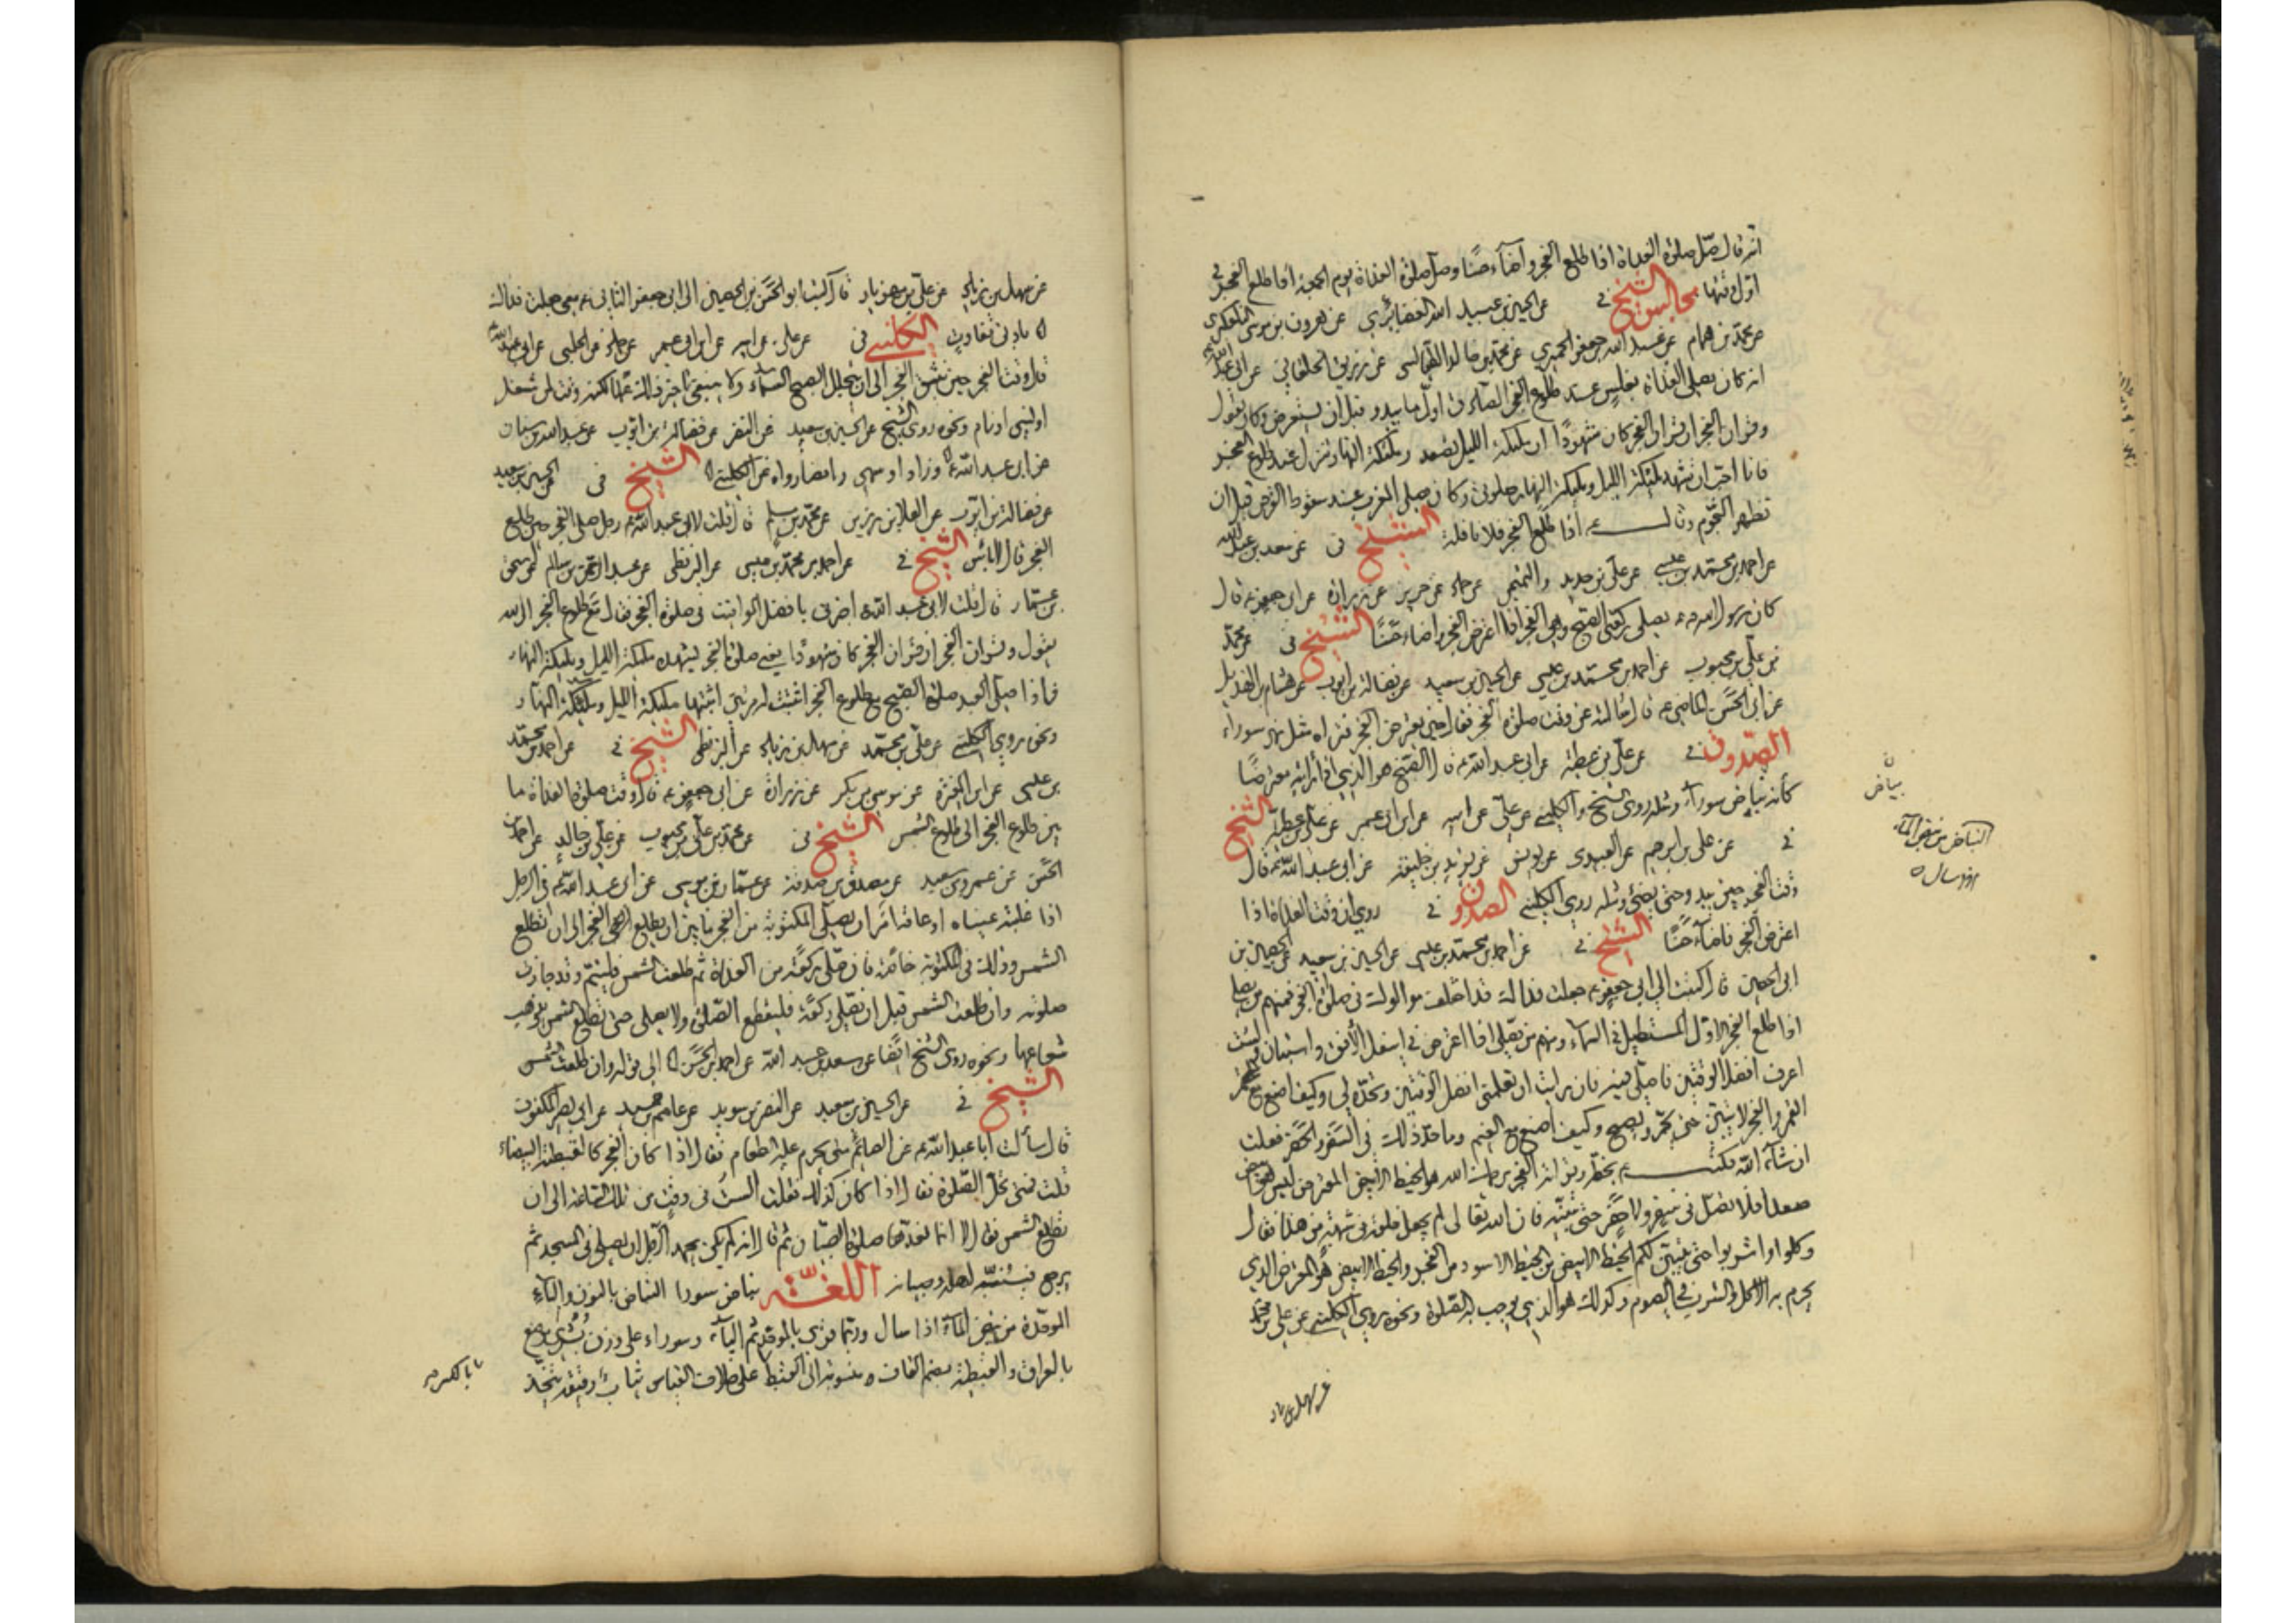 انه قال صل صلوة الغداة اذا طلع الفجر واضاء حسنا وصل صلوة الغداة يوم الجمعة اذا طلع الفجر في
اول وقتها مجالس الشيخ في عن الحسين بن عبيد الله الغضايري عن هرون بن موسى التلعكبري
عن محمد بن همام عن عبد الله بن جعفر الحميري عن محمد بن خالد الطيالسي عن زريق الخلقاني عن ابي عبد الله ع
انه كان يصلي الغداة بغلس عند طلوع الفجر الصادق اول ما يبدو قبل ان يستعرض وكان يقول
وقران الفجر ان قران الفجر كان مشهودا ان ملئكة الليل تصعد وملئكة النهار تنزل عند طلوع الفجر
فانا احب ان تشهد ملئكة الليل وملئكة النهار صلوتي وكان يصلي المغرب عند سقوط القرص قبل ان
تظهر النجوم وقال ع اذا طلع الفجر فلا نافلة الشيخ في عن سعد بن عبد الله
عن احمد بن محمد بن عيسى عن علي بن حديد و عن حماد عن حريز عن زرارة عن ابي جعفر ع قال
كان رسول الله ص يصلي ركعتي الصبح وهي الفجر اذا اعترض الفجر واضاء حسنا الشيخ في عن محمد
بن علي بن محبوب عن احمد بن محمد بن عيسى عن الحسين بن سعيد عن فضالة بن ايوب عن هشام بن الهذيل
عن ابي الحسن الماضي ع قال سالته عن وقت صلوة الفجر فقال حين يعترض الفجر فتراه مثل نهر سوراء
الصدوق في عن علي بن عطية عن ابي عبد الله ع قال الفجر هو الذي اذا رايته معترضا
كانه بياض سوراء ومثله روى الشيخ والكليني عن علي عن ابيه عن ابن ابي عمير عن علي بن عطية الشيخ
في عن علي بن ابرهيم عن العبيدي عن يونس عن يزيد بن خليفة عن ابي عبد الله ع قال
وقت الفجر حين يبدو حتى يضيء ومثله روى الكليني الصدوق في روي ان وقت الغداة اذا
اعترض الفجر فاضاء حسنا الشيخ في عن احمد بن محمد بن عيسى عن الحسين بن سعيد عن الحصين بن
ابي الحصين قال كتبت الى ابي جعفر ع جعلت فداك قد اختلف موالوك في صلوة الفجر فمنهم من يصلي
اذا طلع الفجر الاول المستطيل في السماء ومنهم من يصلي اذا اعترض في اسفل الافق واستبان ولست
اعرف افضل الوقتين فاصلي فيه فان رايت ان تعلمني افضل الوقتين وتحده لي وكيف اصنع مع
القمر والفجر لا يتبين حتى يحمر ويصبح وكيف اصنع مع الغيم وما حد ذلك في السفر والحضر فعلت
ان شاء الله فكتب ع بخطه وقراته الفجر يرحمك الله هو الخيط الابيض المعترض ليس هو الابيض
صعدا فلا تصل في سفر ولا حضر حتى تتبينه فان الله تعالى لم يجعل خلقه في شبهة من هذا فقال
وكلوا واشربوا حتى يتبين لكم الخيط الابيض من الخيط الاسود من الفجر والخيط الابيض هو المعترض الذي
يحرم به الاكل والشرب في الصوم وكذلك هو الذي يوجب به الصلوة ونحوه روى الكليني عن علي بن محمد
عن سهل بن زياد
ن
بياض
النباض من نبض الماء
اذا سال ه
عن سهل بن زياد عن علي بن مهزيار قال كتب ابو الحسن بن الحصين الى ابي جعفر الثاني ع معي جعلت فداك
بادنى تفاوت الكليني في عن علي عن ابيه عن ابن ابي عمير عن حماد عن الحلبي عن ابي عبد الله ع
قال وقت الفجر حين ينشق الفجر الى ان يتجلل الصبح السماء ولا ينبغي تاخير ذلك عمدا لكنه وقت لمن شغل
او نسي او نام ونحوه روى الشيخ عن الحسين بن سعيد عن النضر عن فضالة بن ايوب عن عبد الله بن سنان
عن ابي عبد الله ع وزاد او سهى وايضا رواه عن الكليني الشيخ في عن الحسين بن سعيد
عن فضالة بن ايوب عن العلا بن رزين عن محمد بن مسلم قال قلت لابي عبد الله ع رجل صلى الفجر حين طلع
الفجر قال لا باس الشيخ في عن احمد بن محمد بن عيسى عن البزنطي عن عبد الرحمن بن سالم عن اسحق
بن عمار قال قلت لابي عبد الله ع اخبرني بافضل المواقيت في صلوة الفجر فقال مع طلوع الفجر ان الله
يقول وقران الفجر ان قران الفجر كان مشهودا يعني صلوة الفجر تشهده ملئكة الليل وملئكة النهار
فاذا صلى العبد صلوة الصبح مع طلوع الفجر اثبتت له مرتين اثبتها ملئكة الليل وملئكة النهار
ونحوه روى الكليني عن علي بن محمد عن سهل بن زياد عن البزنطي الشيخ في عن احمد بن محمد
بن عيسى عن ابن المغيرة عن موسى بن بكر عن زرارة عن ابي جعفر ع قال وقت صلوة الغداة ما
بين طلوع الفجر الى طلوع الشمس الشيخ في عن محمد بن علي بن محبوب عن علي بن خالد عن احمد بن
الحسن عن عمرو بن سعيد عن مصدق بن صدقة عن عمار بن موسى عن ابي عبد الله ع في الرجل
اذا غلبته عيناه او عاقه امر ان يصلي المكتوبة من الفجر ما بين ان يطلع الفجر الى ان تطلع
الشمس وذلك في المكتوبة خاصة فان صلى ركعة من الغداة ثم طلعت الشمس فليتم وقد جازت
صلوته وان طلعت الشمس قبل ان يصلي ركعة فليقطع الصلوة ولا يصلي حتى تطلع الشمس ويذهب
شعاعها ونحوه روى الشيخ ايضا عن سعد بن عبد الله عن احمد بن الحسن الى قوله وان طلعت الشمس
الشيخ في عن الحسين بن سعيد عن النضر بن سويد عن عاصم بن حميد عن ابي بصير المكفوف
قال سالت ابا عبد الله ع عن الصائم متى يحرم عليه الطعام فقال اذا كان الفجر كالقبطية البيضاء
قلت فمتى تحل الصلوة فقال اذا كان كذلك فقلت الست في وقت من تلك الساعة الى ان
تطلع الشمس فقال لا انما نعدها صلوة الصبيان ثم قال انه لم يكن يحمد الرجل ان يصلي في المسجد ثم
يرجع فينبه اهله وصبيانه اللغة نباض سورا النباض بالنون والباء
الموحدة من نبض الماء اذا سال وربما قرئ بالموحدة ثم الياء وسوراء على وزن بشرى موضع
بالعراق والقبطية بضم القاف منسوبة الى القبط على خلاف القياس ثياب رقيقة تتخذ